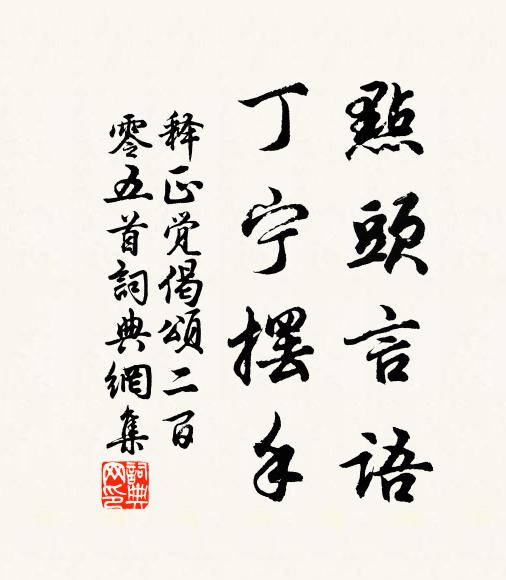 點頭言語
丁宁擺手
释正觉偈頌二百
零五首詞典網集
詞典
网